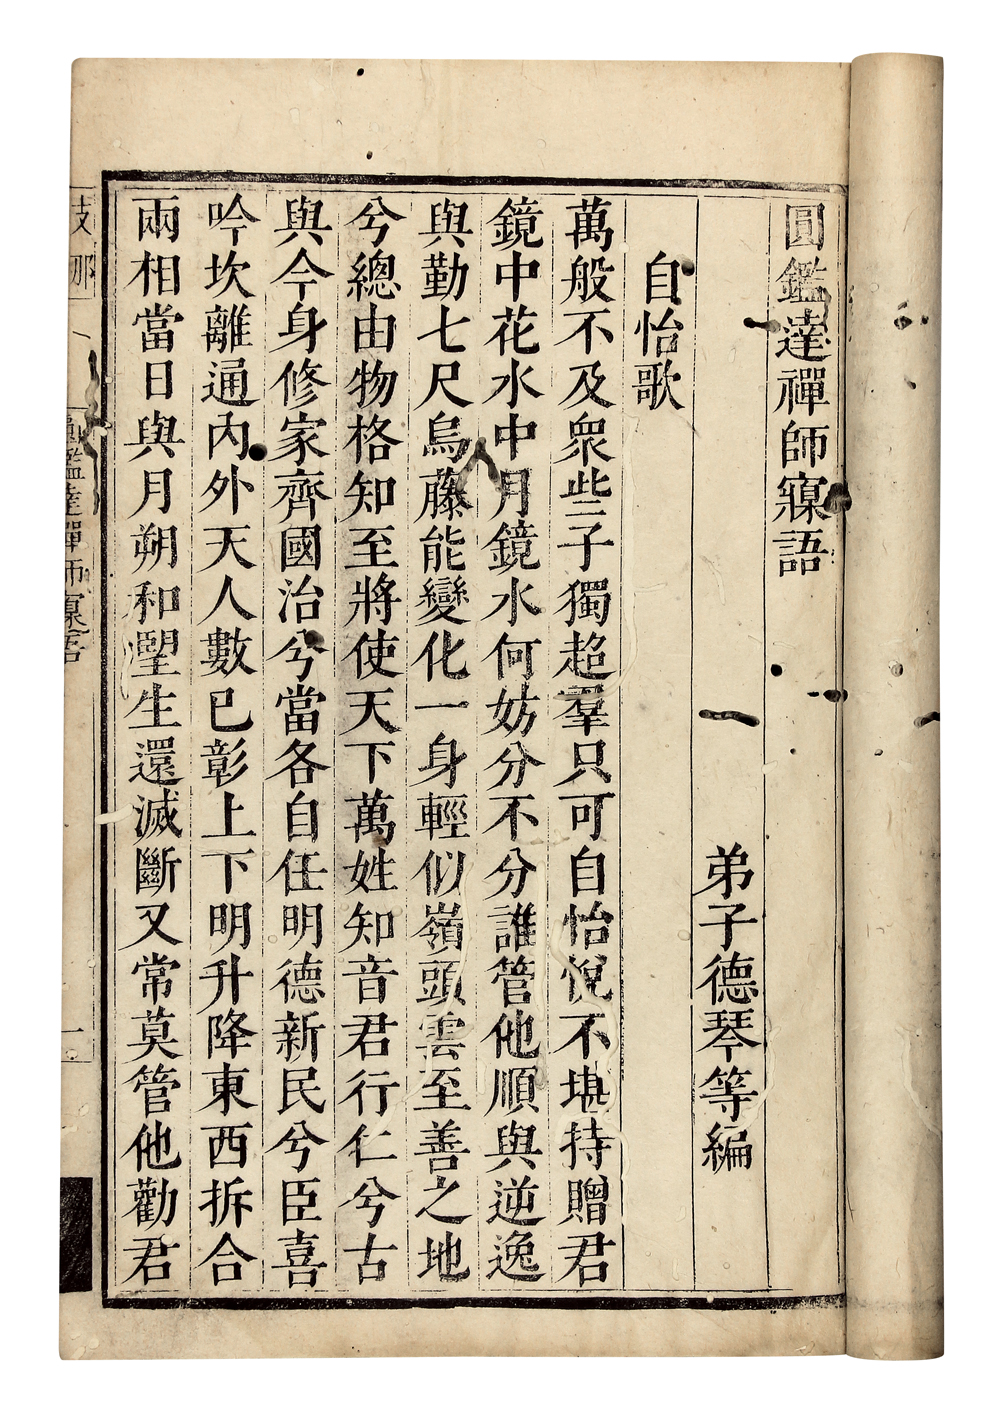 圓鑑達禪師寱語
弟子德琴等編
自怡歌
萬般不及衆些子獨超羣只可自怡悅不堪持贈君
鏡中花水中月鏡水何妨分不分誰管他順與逆逸
與勤七尺烏藤能變化一身輕似嶺頭雲至善之地
兮總由物格知至將使天下萬姓知音君行仁兮古
與今身修家齊國治兮當各自任明德新民兮臣喜
吟坎離通內外天人數已彰上下明升降東西拆合
兩相當日與月朔和朢生還滅斷又常莫管他勸君
支那
圓鑑達禪師寱語
一